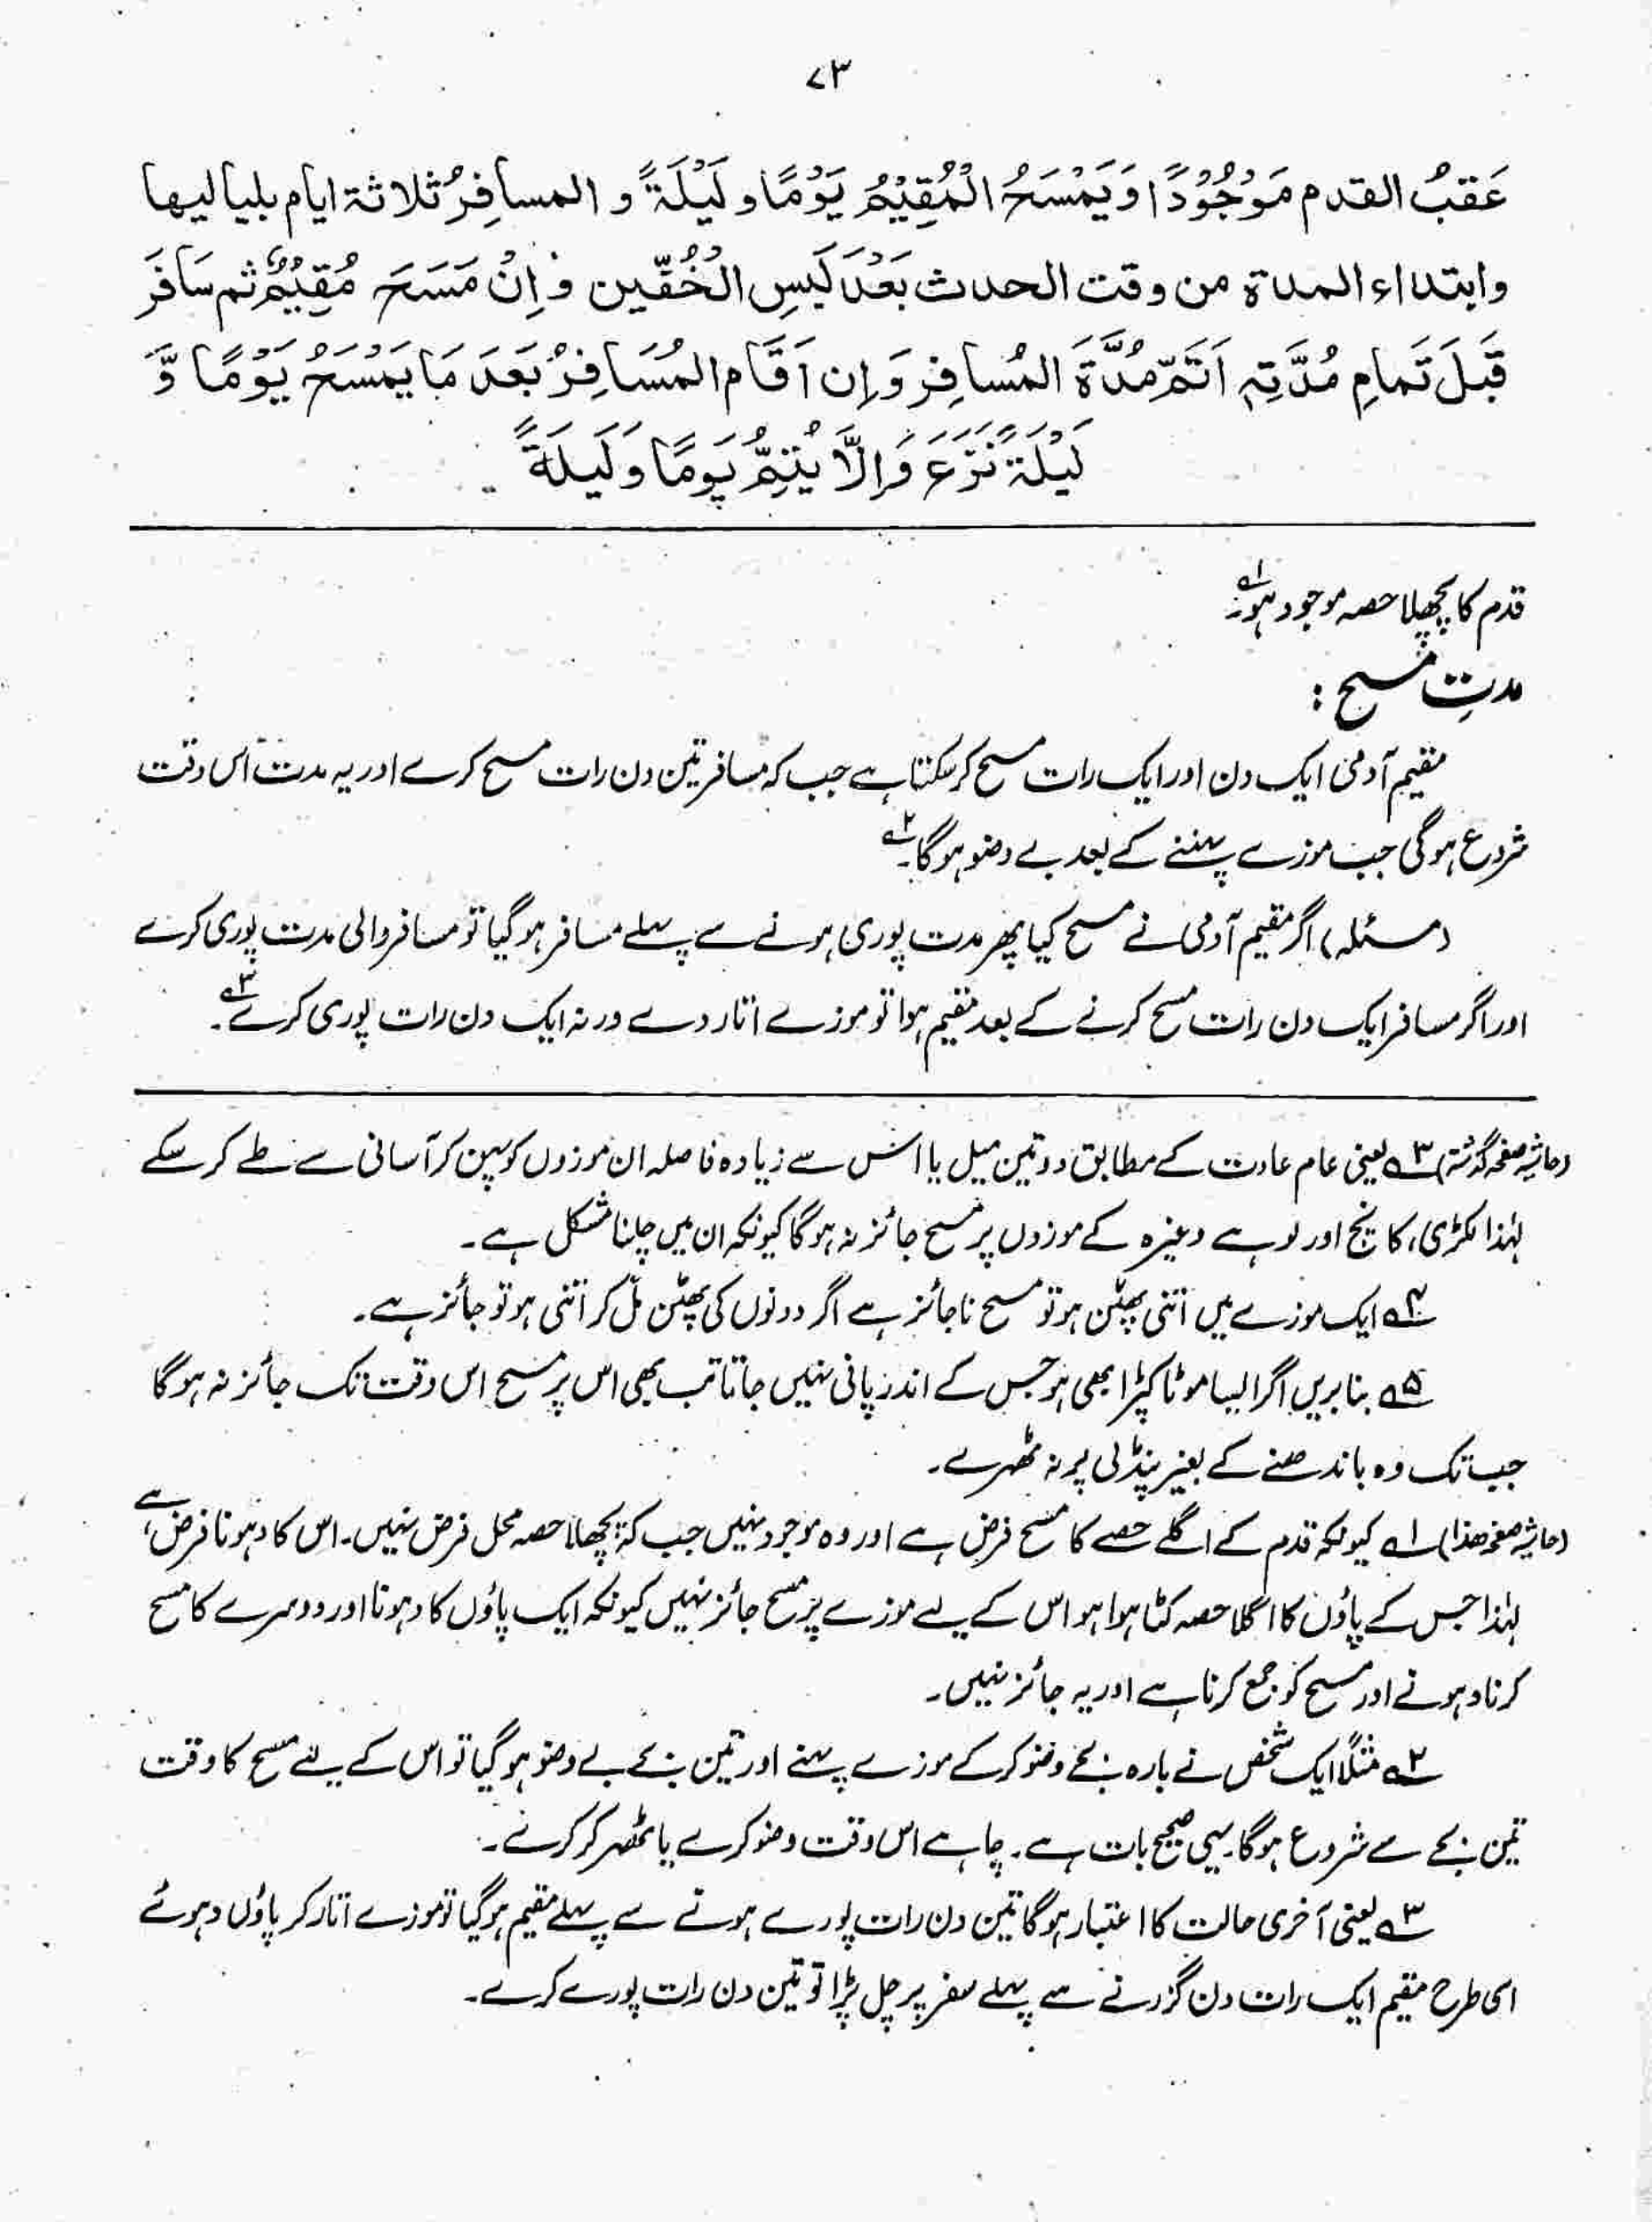 ۷۳
عَقبُ القدم مَوْجُوْدًا وَيَمْسَحُ الْمُقِيْمُ يَوْمًا و لَيْلَةً و المسافِرُ ثلاثة ايام بلياليها
وابتداء المدة من وقت الحدث بَعْدَ لَبسِ الْخُفّين و اِنْ مَسَحَ مُقِيْمٌ ثم سَافَرَ
قَبلَ تَمامِ مُدَّتِہٖ اَتَمَّ مُدَّةَ المُسافِرِ وَاِن اَقَام المُسَافِرُ بَعدَ مَا يَمْسَحُ يَوْمًا وَّ
لَيْلَةً نَزَعَ وَاِلَّا يُتِمُّ يَومًا وَلَيلَةً
قدم کا پچھلا حصہ موجود ہو۔ ۱ے
مدتِ مسح :
مقیم آدمی ایک دن اور ایک رات مسح کر سکتا ہے جب کہ مسافر تین دن رات مسح کرے اور یہ مدت اس وقت
شروع ہوگی جب موزے پہننے کے بعد بے وضو ہوگا۔ ۲ے
(مسئلہ) اگر مقیم آدمی نے مسح کیا پھر مدت پوری ہونے سے پہلے مسافر ہوگیا تو مسافر والی مدت پوری کرے
اور اگر مسافر ایک دن رات مسح کرنے کے بعد مقیم ہوا تو موزے اتار دے ورنہ ایک دن رات پوری کرے۔ ۳ے
(حاشیہ صفحہ گذشتہ) ۳ے یعنی عام عادت کے مطابق دو تین میل یا اس سے زیادہ فاصلہ ان موزوں کو پہن کر آسانی سے طے کر سکے
لہٰذا لکڑی، کانچ اور لوہے وغیرہ کے موزوں پر مسح جائز نہ ہوگا کیونکہ ان میں چلنا مشکل ہے۔
۴ے ایک موزے میں اتنی پھٹن ہو تو مسح ناجائز ہے اگر دونوں کی پھٹن مل کر اتنی ہو تو جائز ہے۔
۵ے بنا بریں اگر ایسا موٹا کپڑا بھی ہو جس کے اندر پانی نہیں جاتا تب بھی اس پر مسح اس وقت تک جائز نہ ہوگا
جب تک وہ باندھنے کے بغیر پنڈلی پر نہ ٹھہرے۔
(حاشیہ صفحہ ھذا) ۱ے کیونکہ قدم کے اگلے حصے کا مسح فرض ہے اور وہ موجود نہیں جب کہ پچھلا حصہ محل فرض نہیں۔ اس کا دہونا فرض ہے،
لہٰذا جس کے پاؤں کا اگلا حصہ کٹا ہوا ہو اس کے لیے موزے پر مسح جائز نہیں کیونکہ ایک پاؤں کا دہونا اور دوسرے کا مسح
کرنا دہونے اور مسح کو جمع کرنا ہے اور یہ جائز نہیں۔
۲ے مثلًا ایک شخص نے بارہ بجے وضو کرکے موزے پہنے اور تین بجے بے وضو ہوگیا تو اس کے لیے مسح کا وقت
تین بجے سے شروع ہوگا۔ یہی صحیح بات ہے۔ چاہے اس وقت وضو کرے یا ٹھہر کر کرے۔
۳ے یعنی آخری حالت کا اعتبار ہوگا تین دن رات پورے ہونے سے پہلے مقیم ہوگیا تو موزے اتار کر پاؤں دہوئے
اسی طرح مقیم ایک رات دن گزرنے سے پہلے سفر پر چل پڑا تو تین دن رات پورے کرے۔